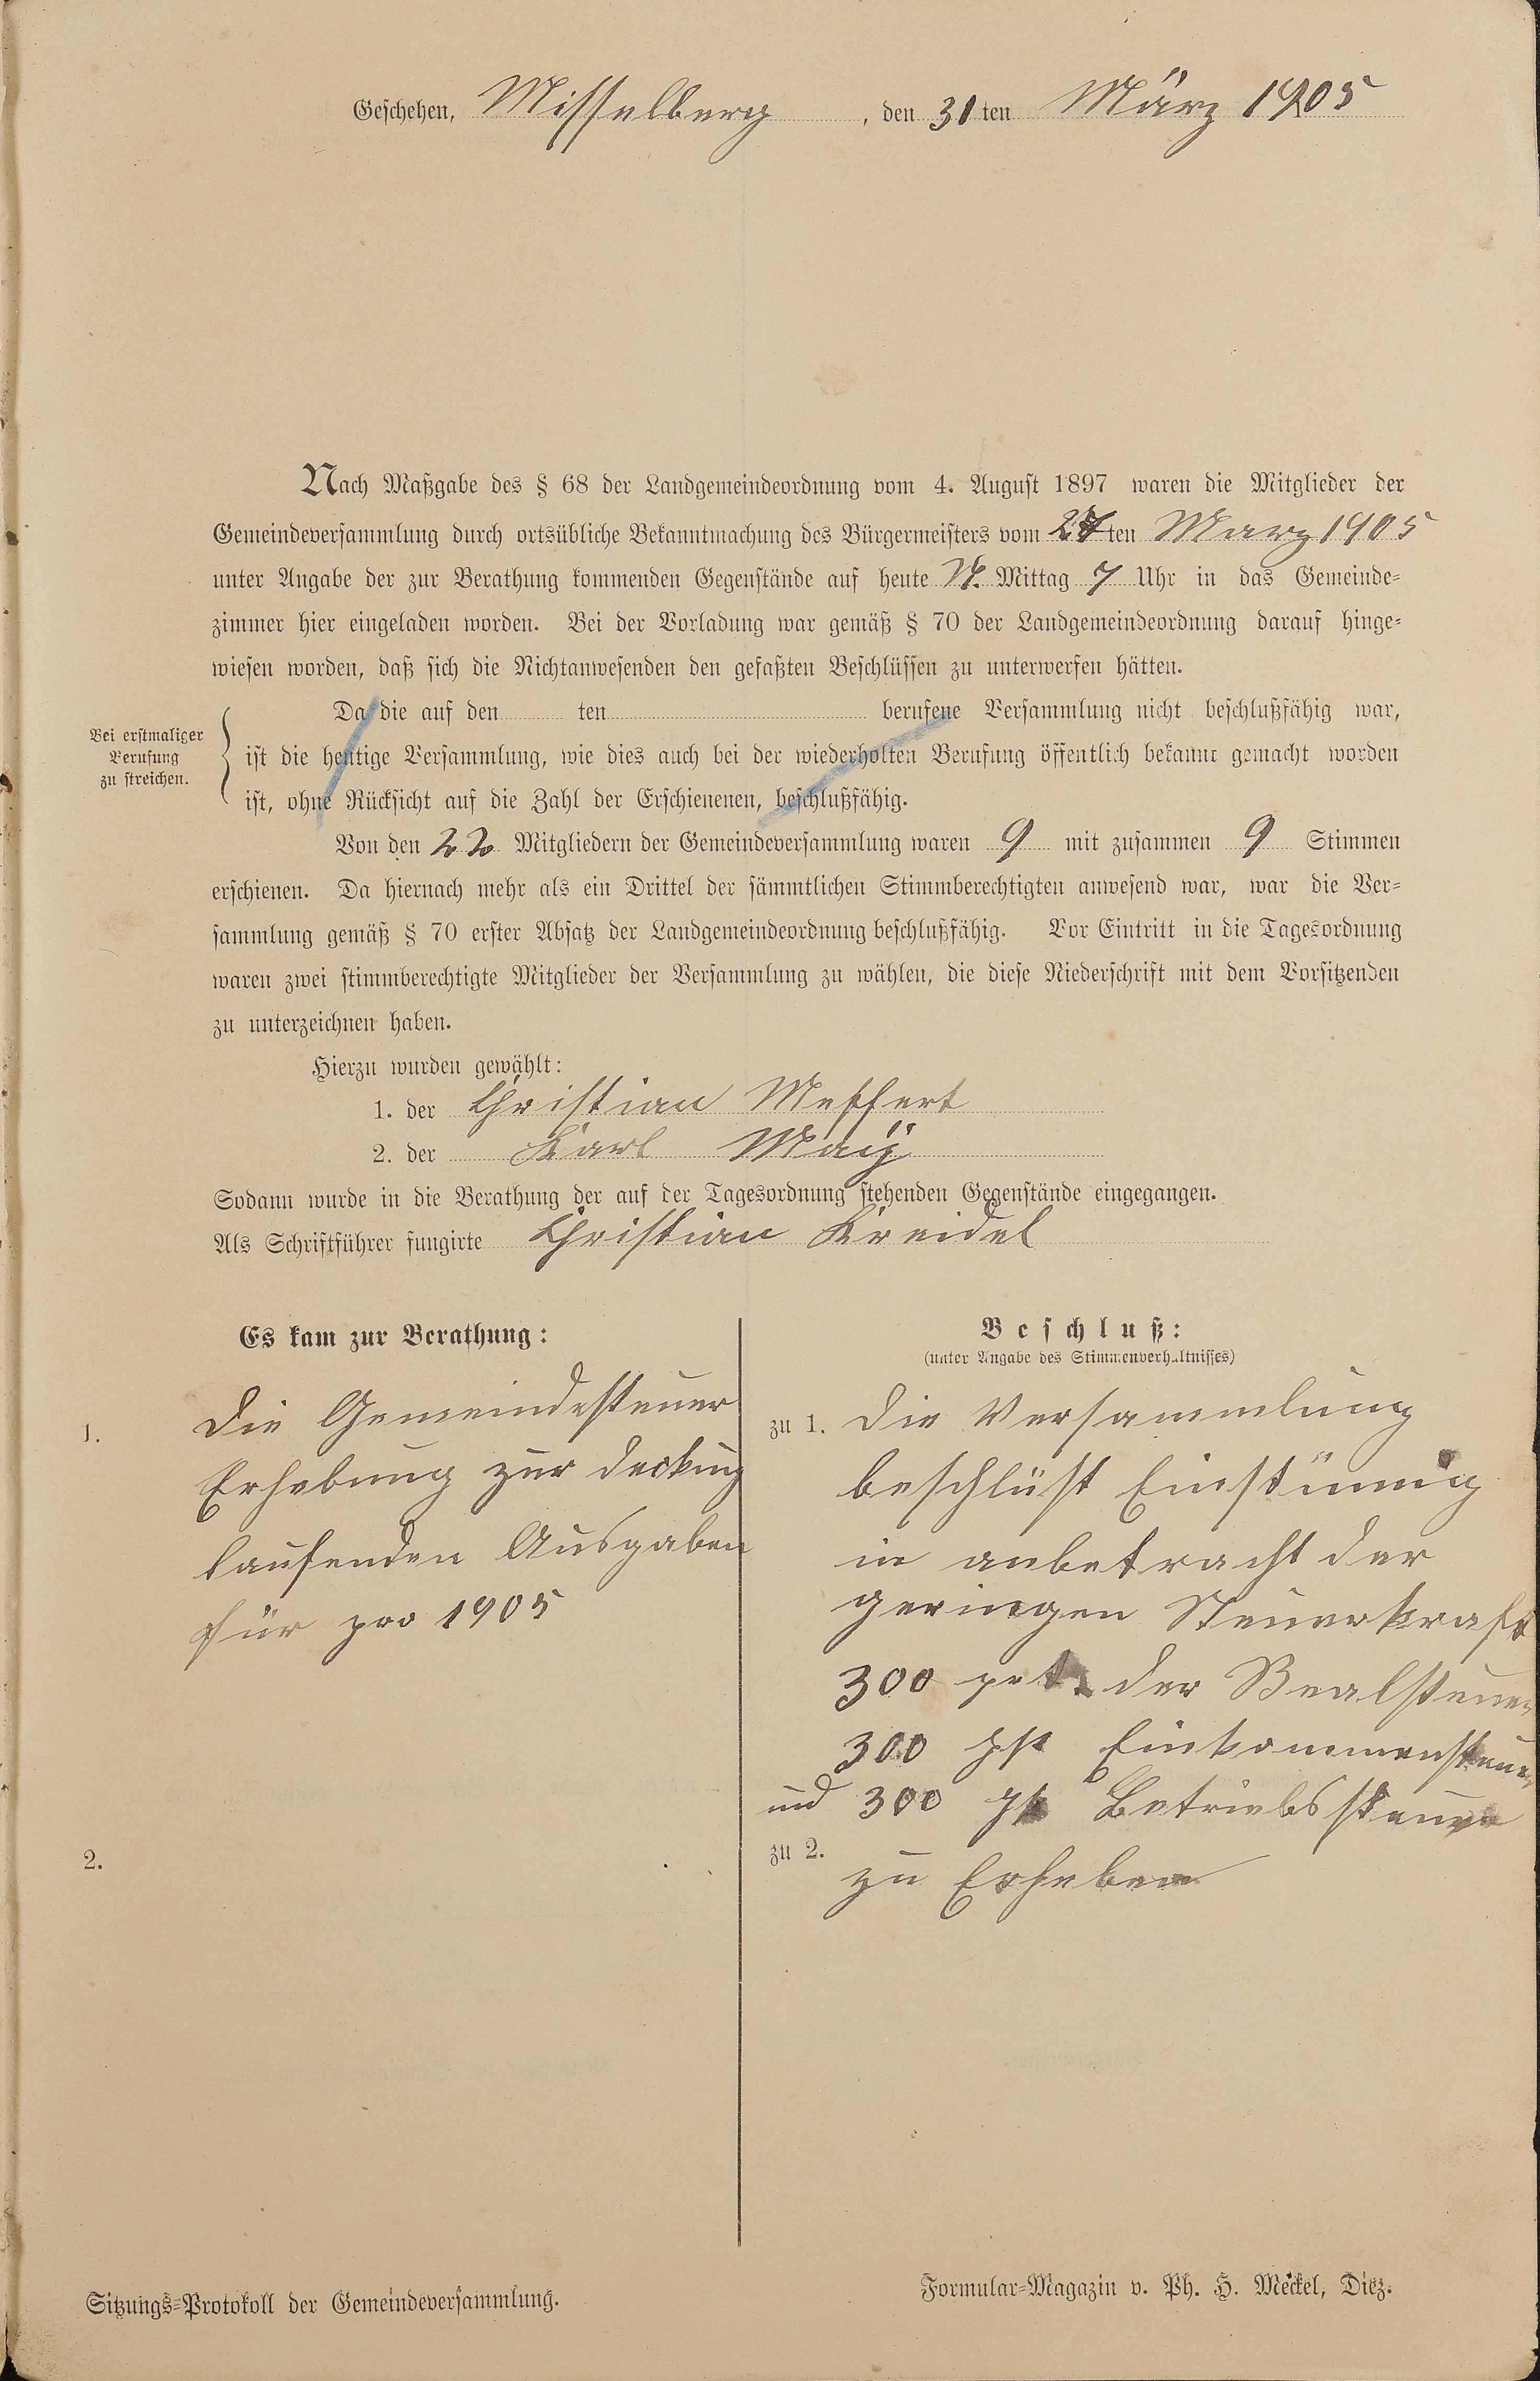 Geschehen, Misselberg, den 31ten März 1905
Nach Maßgabe des § 68 der Landgemeindeordnung vom 4. August 1897 waren die Mitglieder der
Gemeindeversammlung durch ortsübliche Bekanntmachung des Bürgermeisters vom 27ten Marz 1905
unter Angabe der zur Berathung kommenden Gegenstände auf heute N. Mittag 7 Uhr in das Gemeinde-
zimmer hier eingeladen worden. Bei der Vorladung war gemäß § 70 der Landgemeindeordnung darauf hinge-
wiesen worden, daß sich die Nichtanwesenden den gefaßten Beschlüssen zu unterwerfen hätten.
Bei erstmaliger
Berufung
zu streichen.
Da die auf den ten berufene Versammlung nicht beschlußfähig war,
ist die heutige Versammlung, wie dies auch bei der wiederholten Berufung öffentlich bekannt gemacht worden
ist, ohne Rücksicht auf die Zahl der Erschienenen, beschlußfähig.
Von den 22 Mitgliedern der Gemeindeversammlung waren 9 mit zusammen 9 Stimmen
erschienen. Da hiernach mehr als ein Drittel der sämmtlichen Stimmberechtigten anwesend war, war die Ver-
sammlung gemäß § 70 erster Absatz der Landgemeindeordnung beschlußfähig. Vor Eintritt in die Tagesordnung
waren zwei stimmberechtigte Mitglieder der Versammlung zu wählen, die diese Niederschrift mit dem Vorsitzenden
zu unterzeichnen haben.
Hierzu wurden gewählt:
1. der Christian Meffert
2. der Karl Maÿ
Sodann wurde in die Berathung der auf der Tagesordnung stehenden Gegenstände eingegangen.
Als Schriftführer fungirte Christian Kreidel
Es kam zur Berathung:
1. Die Gemeindesteuer
Erhebung zur deckung
laufenden Ausgaben
für pro 1905
2.
Beschluß:
(unter Angabe des Stimmenverhältnisses)
zu 1. Die Versammlung
beschlüst Einstümig
in anbetracht der
geringen Steuerkraft
300 prt. der Realsteuer
300 pt Einkommensteuer
und 300 pt Betriebssteuer
zu 2.
zu Erheben
Sitzungs-Protokoll der Gemeindeversammlung.
Formular-Magazin v. Ph. H. Meckel, Diez.